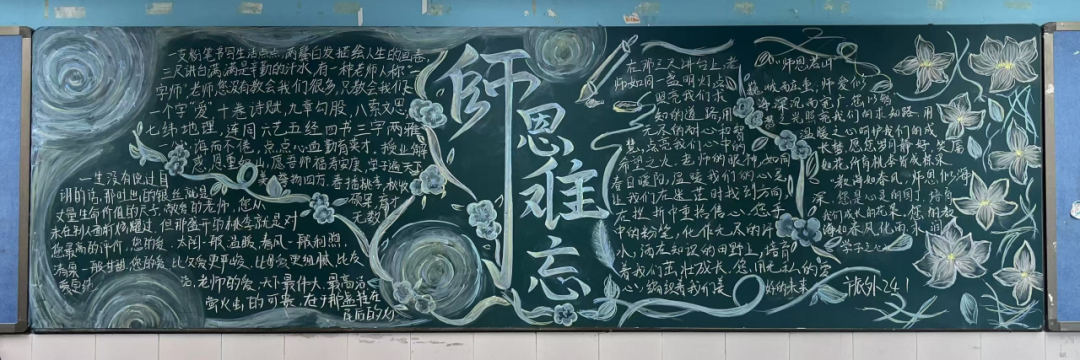 一支粉笔书写生活点点,两鬓白发描绘人生的画卷,
三尺讲台满满是辛勤的汁水,有一种老师人称"一
字师"老师您没有教会我们很多,只教会我们
一个字"爱"十卷诗赋,九章勾股,八索文思,
七纬地理,连同六艺五经四书三字两雅
海而不倦,点点心血勤育英才,授业解
惑,恩重如山,愿吾师福寿安康,学子遍天下
美誉扬四方,春播桃李,秋收
硕果,育才
无数
一生没有说过自
诩的话,那吐出的银丝就是
丈量生命价值的尺子,敬爱的老师,您从
未在别人面前炫耀过,但那盛开的桃李就是对
您最高的评价,您的爱,太阳一般温暖,春风一般和煦,
清泉一般甘甜,您的爱,比父爱更严峻,比母爱更细腻,比友
爱更纯洁,老师的爱,天下最伟大,最高洁,
萤火虫的可爱,在于那盏挂在
背后的灯
師恩难忘
在师三尺讲台上,老
师如同一盏明灯,点
照亮我们求
知的道路,用
无尽的耐心和智
慧,点亮我们心中的
希望之火,老师的眼神,如同
春日暖阳,温暖我们的心灵
让我们在迷茫时找到方向
在挫折中重拾信心,您手
中的粉笔,化作无尽的汗
水,洒在知识的田野上,培育
着我们茁壮成长,您用无私的
心,编织着我们美
好的未来
师恩若山
巍峨而庄重,师爱似
海,深沉而宽广,您以智
慧之光照亮我们的求知路,用
温暖之心呵护我们的成
长梦,愿您岁月静好,笑屑
如花,所有桃李皆成栋梁
教诲如春风,师恩似海
深,您是心灵的园丁,培育
我们成长的花朵,您的教
诲如春风化雨,永润
学子之心
计Service外241